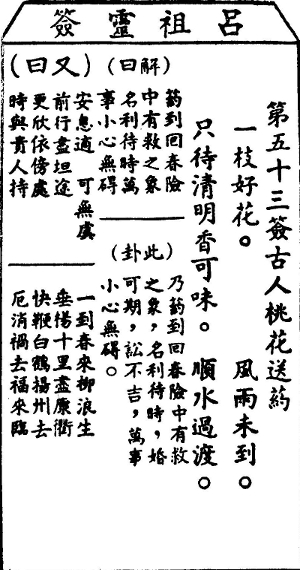 呂祖靈簽
第五十三簽古人桃花送葯
一枝好花。 風雨未到。
只待清明香可味。 順水過渡。
(解曰)
葯到回春險
中有救之象
名利待時萬
事小心無碍
(此卦)
乃葯到回春險中有救
之象,名利待時,婚
可期,訟不吉,萬事
小心無碍。
(又曰)
安息適可無虞
前行盡坦途
更欣依傍處
時與貴人持
一到春來柳浪生
垂楊十里盡康衢
快鞭白鶴揚州去
厄消禍去福來臨